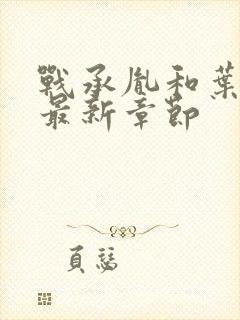 戰承胤和葉
最新章節
頁惡